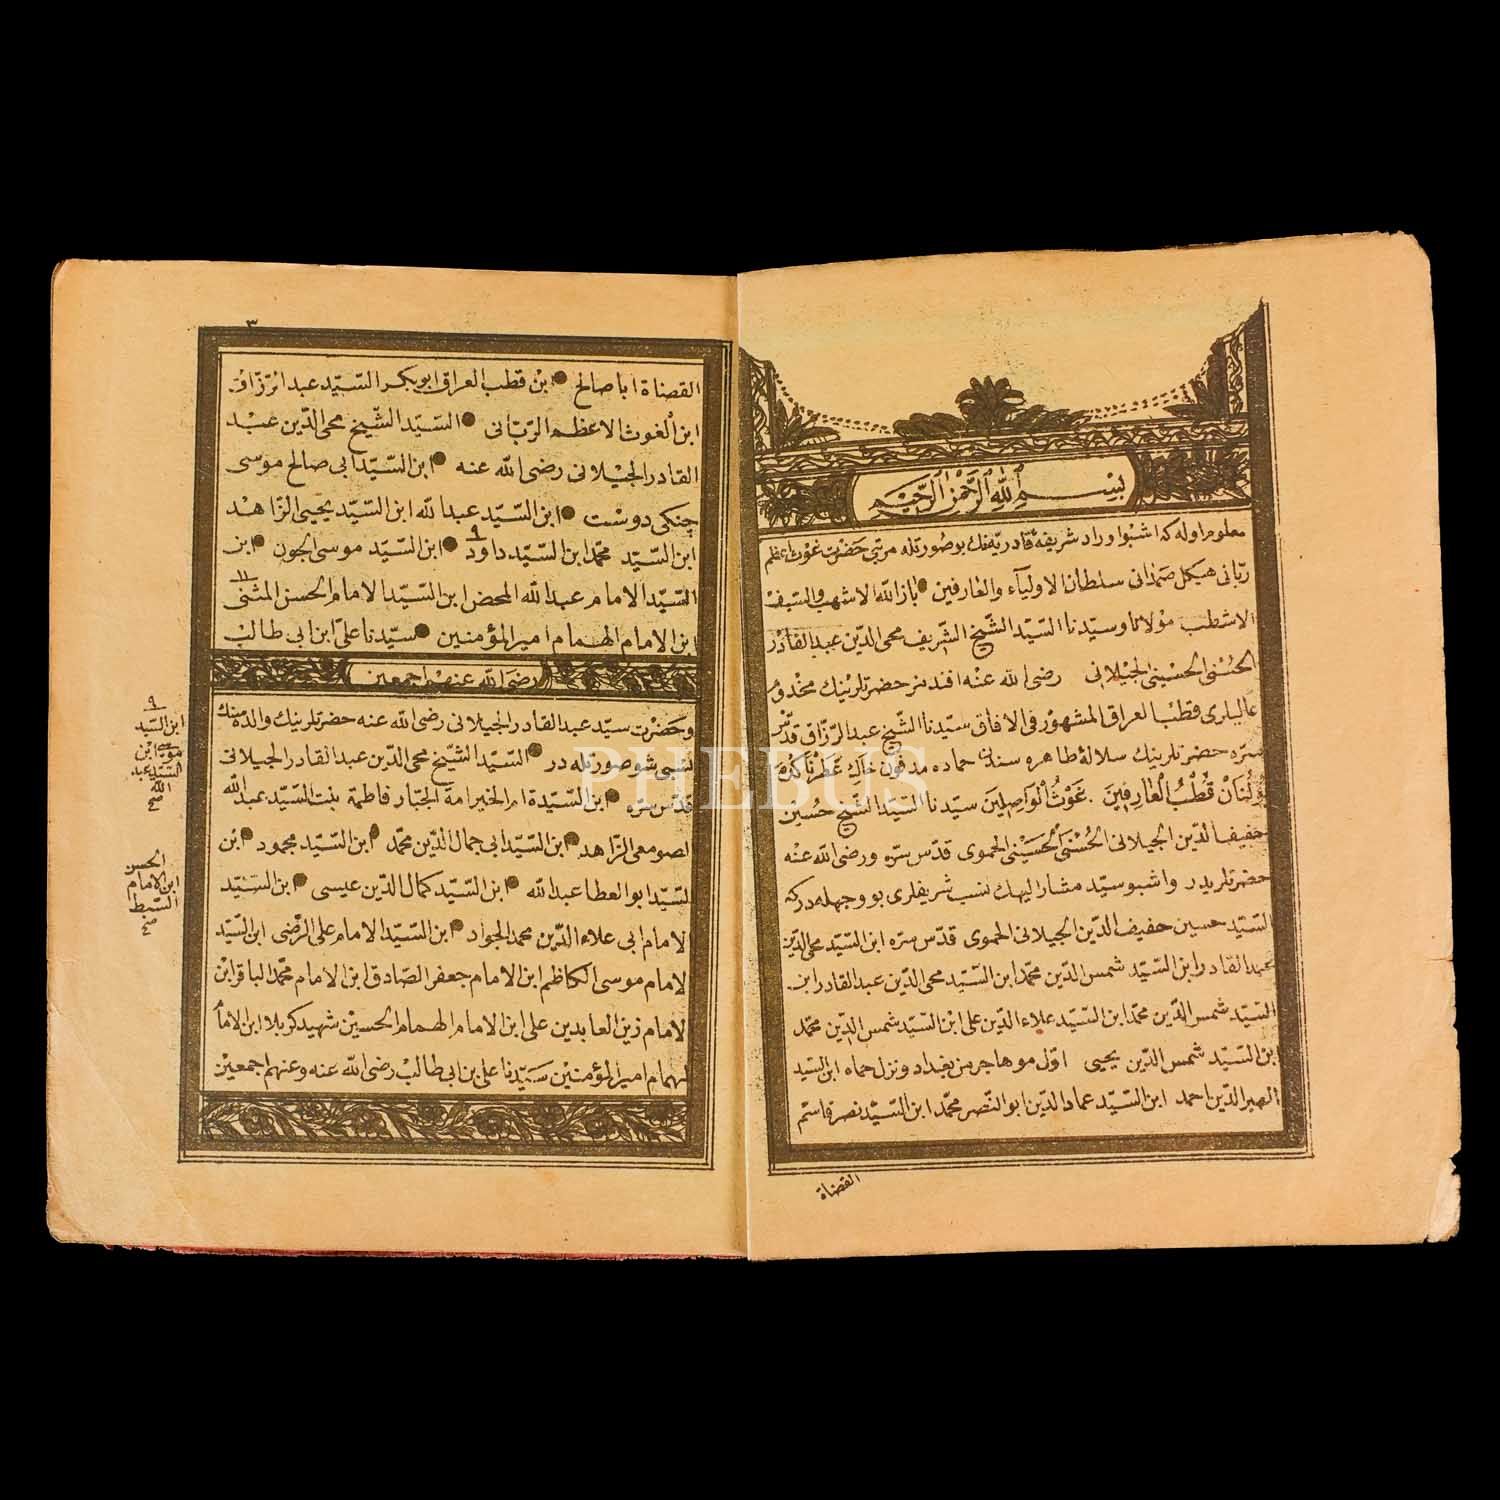 بِسْمِ اللهِ الرَّحْمٰنِ الرَّحِيْمِ
معلوم اوله كه اشبو اوراد شريفهٔ قادريه نك بو صورتله مرتبى حضرت غوث اعظم
ربّانى هيكل صمدانى سلطان الاوليآء والعارفين ● باز الله الاشهب والسّيف
الاشطب مولانا وسيّدنا السّيّد الشّيخ الشّريف محى الدّين عبد القادر
الحَسَنى الحسينى الجيلانى رضى الله عنه افندينز حضرتلرينك مخدوم
عاليارى قطب العراق المشهور فى الافاق سيّدنا الشّيخ عبد الرّزاق قدّس
سرّه حضرتلرينك سلالهٔ طاهره سندن حماده مدفون خاك عطرناك
اولنان قُطْبُ الْعَارِفِينَ . غَوْثُ الْوَاصِلِينَ سيّدنا السّيّد الشّيخ حسين
عفيف الدّين الجيلانى الحَسَنى الحُسَيْنى الحموى قدّس سرّه ورضى الله عنه
حضرتلريدر واشبو سيّد مشار اليهك نسب شريفلرى بو وجهله در كه
السّيّد حسين عفيف الدّين الجيلانى الحموى قدّس سرّه ابن السّيّد محى الدّين
عبد القادر ابن السّيّد شمس الدّين محمّد ابن السّيّد محى الدّين عبد القادر ابن
السّيّد شمس الدّين محمّد ابن السّيّد علاء الدّين على ابن السّيّد شمس الدّين محمّد
ابن السّيّد شمس الدّين يحيى اوّل مو هاجر من بغداد ونزل حماه ابن السّيّد
الدّين احمد ابن السّيّد عماد الدّين ابو النّصر محمّد ابن السّيّد نصر قاسم
القضاة
٣
القضاة ابا صالح ● ابن قطب العراق ابو بكر السّيّد عبد الرّزّاق
ابن الغوث الاعظم الرّبّانى ● السّيّد الشّيخ محى الدّين عبد
القادر الجيلانى رضى الله عنه ● ابن السّيّد ابى صالح موسى
جنكى دوست ● ابن السّيّد عبد الله ابن السّيّد يحيى الزّاهد
ابن السّيّد محمّد ابن السّيّد داود ٩ ● ابن السّيّد موسى الجون ● ابن
السّيّد الامام عبد الله المحض ابن السّيّد الامام الحسن المثنى ١١
ابن الامام الهمام امير المؤمنين ● سيّدنا على ابن ابى طالب
رضى الله عنهم اجمعين
وحضرت سيّد عبد القادر الجيلانى رضى الله عنه حضرتلرينك والده سنك
نسبى شو صورتله در ● السّيّد الشّيخ محى الدّين عبد القادر الجيلانى
قدّس سرّه ● ابن السّيّدة ام الخير امة الجبّار فاطمة بنت السّيّد عبد الله
الصومعى الزّاهد ● ابن السّيّد ابى جمال الدّين محمّد ● ابن السّيّد محمود ● ابن
السّيّد ابو العطا عبد الله ● ابن السّيّد كمال الدّين عيسى ● ابن السّيّد
الامام ابى علاء الدّين محمد الجواد ● ابن السّيّد الامام على الرّضى ابن السّيّد
الامام موسى الكاظم ابن الامام جعفر الصّادق ابن الامام محمّد الباقر ابن
الامام زين العابدين على ابن الامام الهمام الحسين شهيد كربلا ابن الامام
الهمام امير المؤمنين سيّدنا على بن ابى طالب رضى الله عنه وعنهم اجمعين
٩
ابن السّيّد
موسى ابن
السّيّد عبد
الله
صح
الحسن
ابن الامام
السّبط
صح
PHEBUS